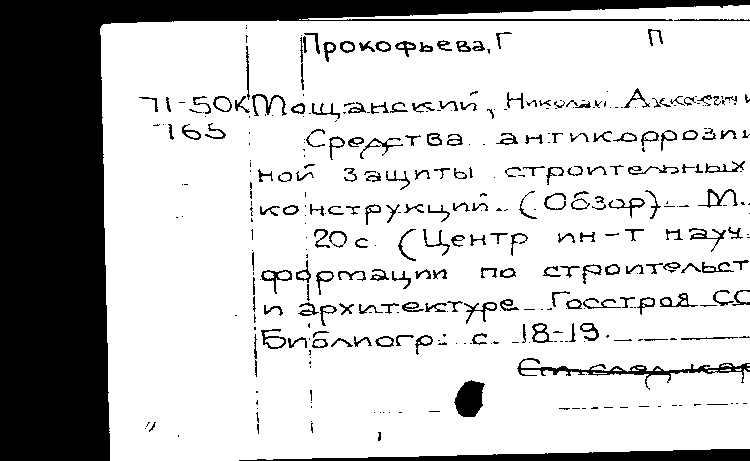 Прокофьева, Г П
71-50К Мощанский, Николай
765 Средства антикоррозий
ной защиты строительных
конструкций. (Обзор). М.,
20 с. (Центр ин-т науч.
формации по строительст
и архитектуре Госстроя СС
Библиогр.: с. 18-19.
См. след. кар